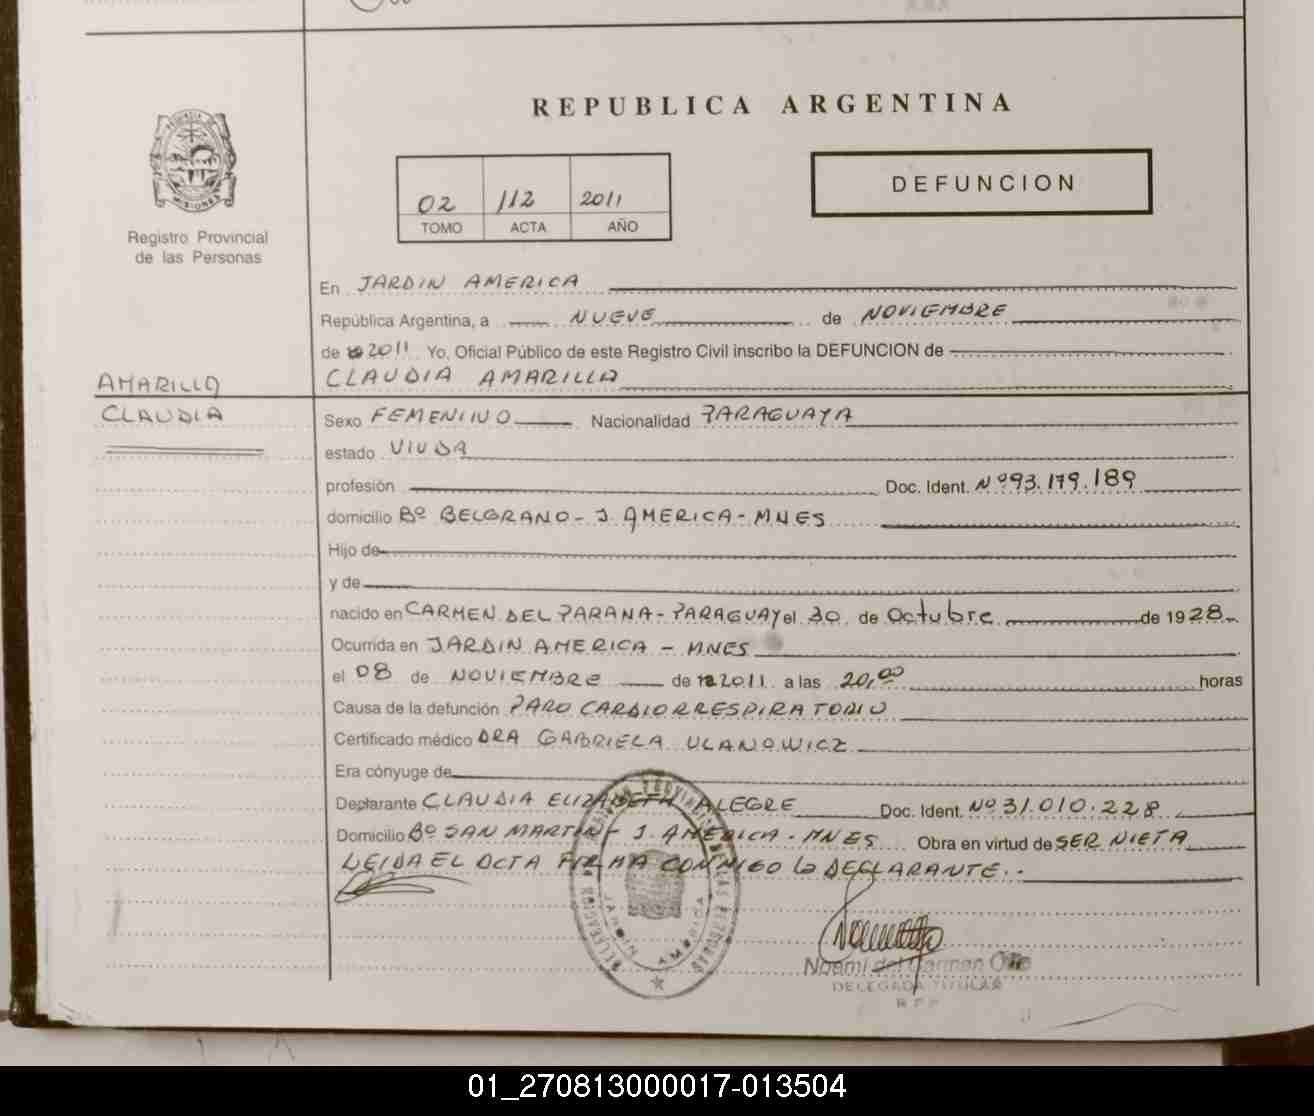 REPUBLICA ARGENTINA
PROVINCIA DE
MISIONES
Registro Provincial
de las Personas
02 112 2011
TOMO ACTA AÑO
DEFUNCION
En JARDIN AMERICA
República Argentina, a NUEVE de NOVIEMBRE
de 2011 Yo, Oficial Público de este Registro Civil inscribo la DEFUNCION de
CLAUDIA AMARILLA
AMARILLA
CLAUDIA
Sexo FEMENINO Nacionalidad PARAGUAYA
estado VIUDA
profesión Doc. Ident. Nº 93.179.189
domicilio Bº BELGRANO - J. AMERICA - MNES
Hijo de
y de
nacido en CARMEN DEL PARANA - PARAGUAY el 30 de Octubre de 1928
Ocurrida en JARDIN AMERICA - MNES
el 08 de NOVIEMBRE de 2011 a las 20,00 horas
Causa de la defunción PARO CARDIORRESPIRATORIO
Certificado médico DRA GABRIELA ULANOWICZ
Era cónyuge de
Declarante CLAUDIA ELIZABETH ALEGRE Doc. Ident. Nº 31.010.228
Domicilio Bº SAN MARTIN - J. AMERICA - MNES Obra en virtud de SER NIETA
LEIDA EL ACTA FIRMA CONMIGO LA DECLARANTE
JARDIN AMERICA
Noemi del Carmen
DELEGADA TITULAR
R.P.P
01_270813000017-013504